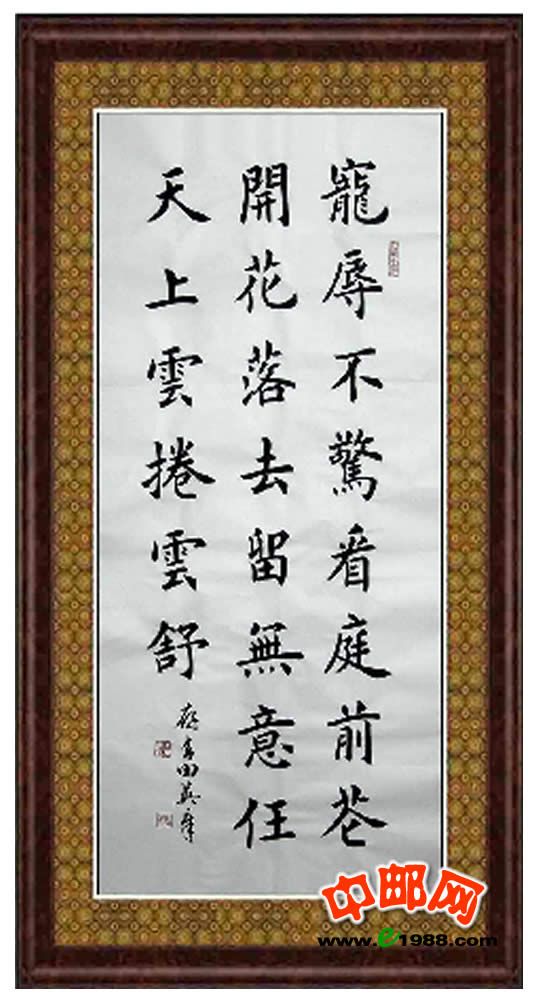 寵辱不驚看庭前花
開花落去留無意任
天上雲捲雲舒
中邮网
www.e1988.com